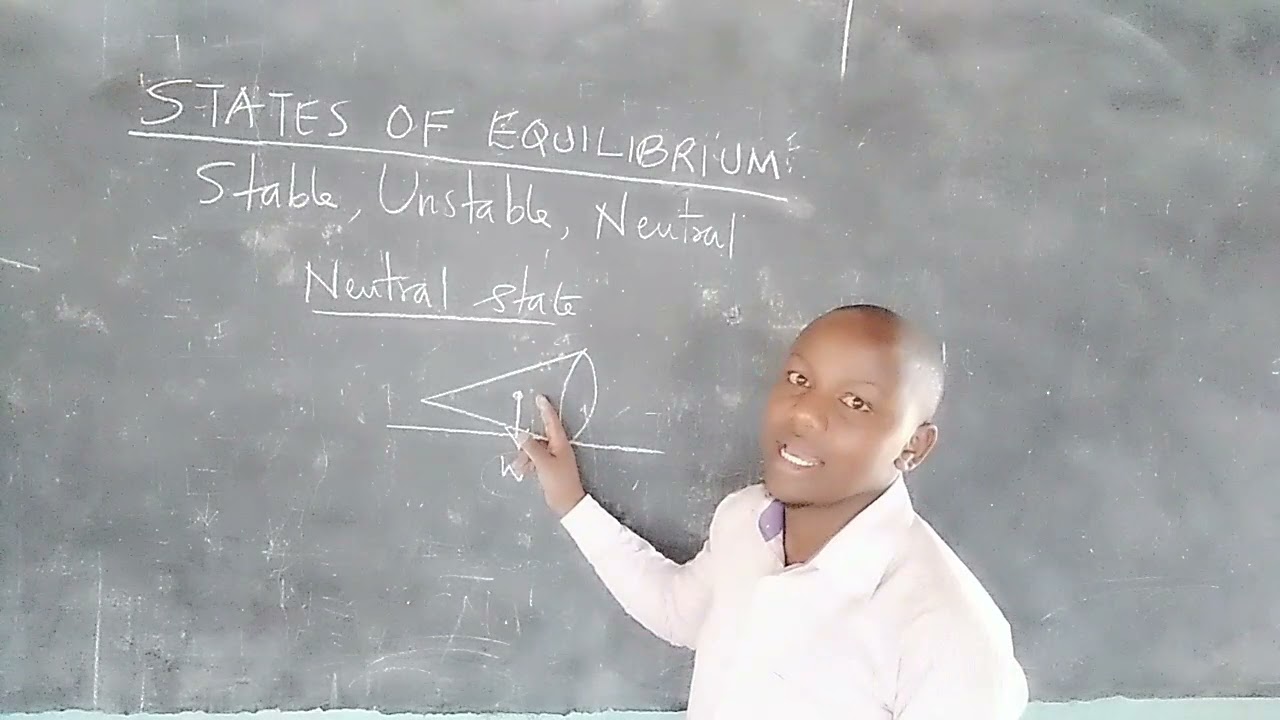 STATES OF EQUILIBRIUM
Stable, Unstable, Neutral
Neutral state
W